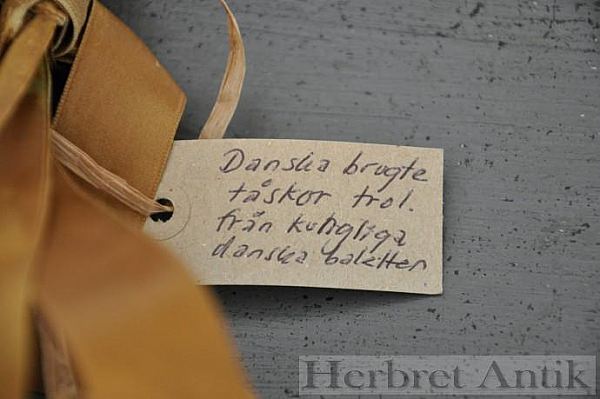 Danska brugte
tåskor trol.
från kungliga
danska baletten
Herbret Antik